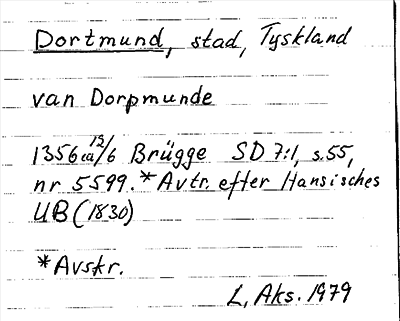 Dortmund, stad, Tyskland
van Dorpmunde
1356 ca 12/6 Brügge SD 7:1, s.55,
nr 5599.* Avtr. efter Hansisches
UB (1830)
*Avskr.
L, Aks. 1979